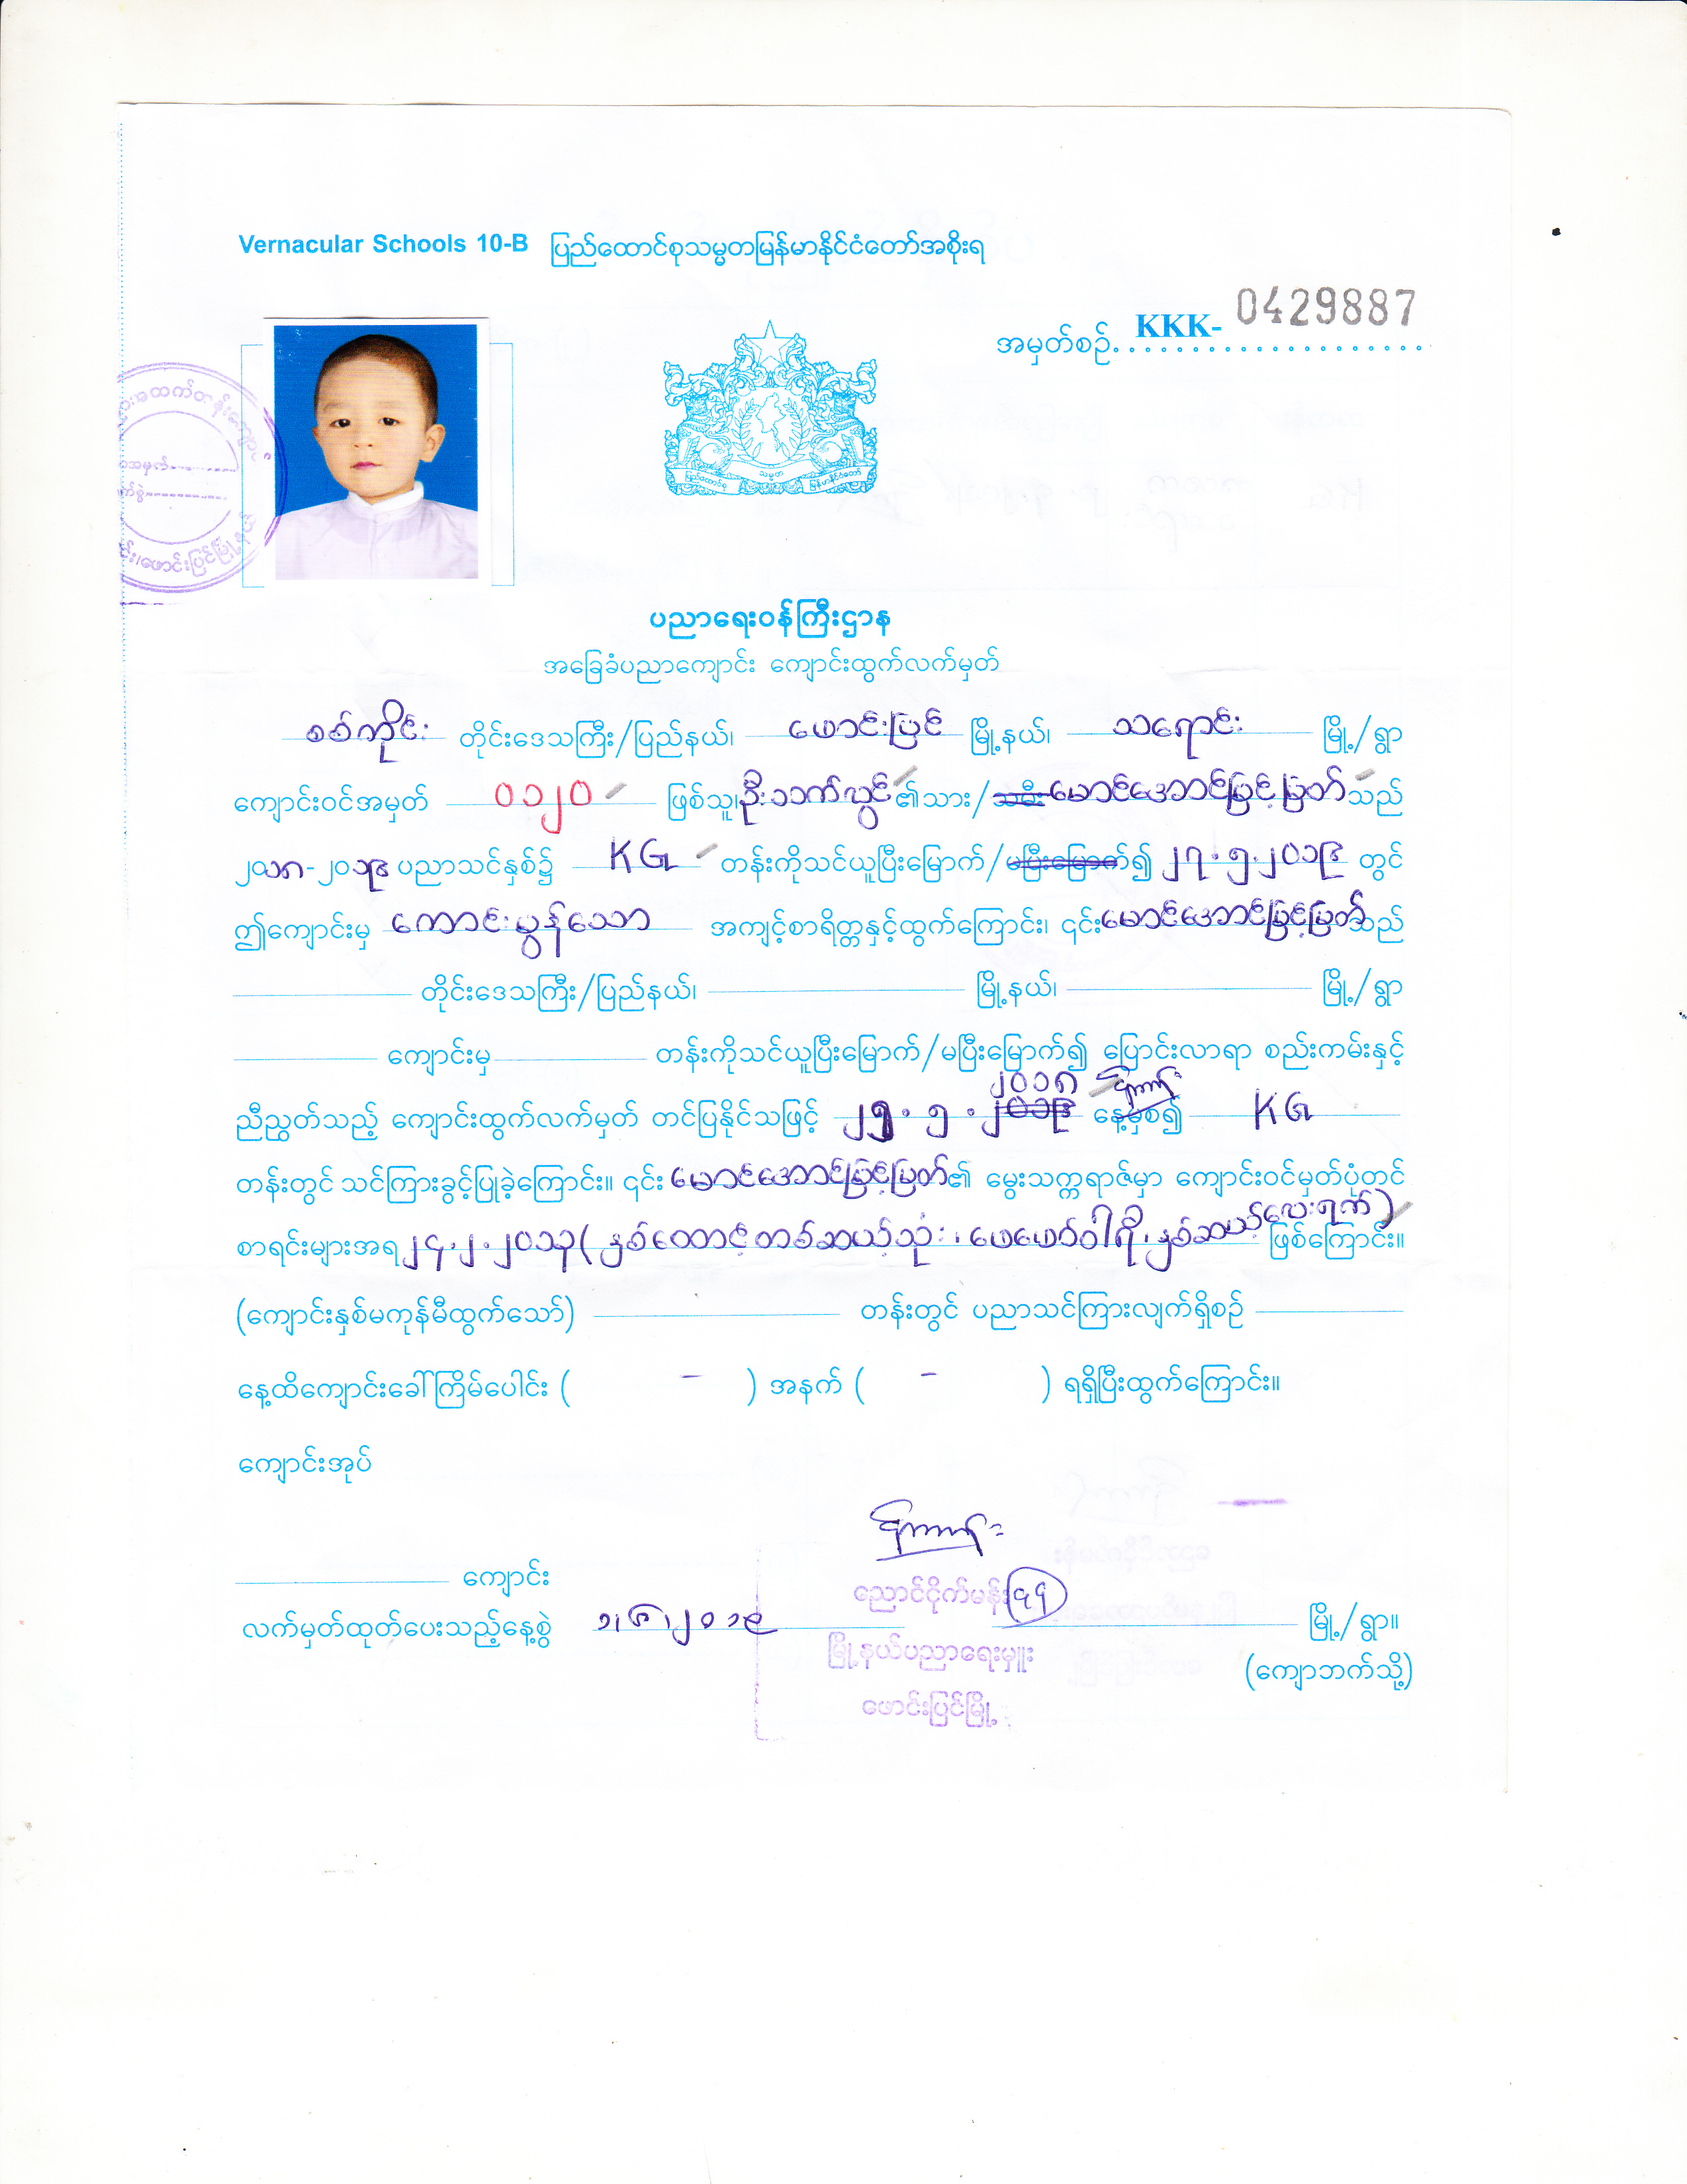 Vernacular Schools 10-B ပြည်ထောင်စုသမ္မတမြန်မာနိုင်ငံတော်အစိုးရ
အမှတ်စဉ်. KKK- 0429887
ပြည်ထောင်စု သမ္မတ မြန်မာနိုင်ငံတော်
ပညာရေးဝန်ကြီးဌာန
အခြေခံပညာကျောင်း ကျောင်းထွက်လက်မှတ်
စစ်ကိုင်း တိုင်းဒေသကြီး/ပြည်နယ်၊ ဖောင်းပြင် မြို့နယ်၊ သရောင်း မြို့/ရွာ
ကျောင်းဝင်အမှတ် ၀၁၂၀ ဖြစ်သူ၊ ဦးသက်လွင် ၏သား/သမီး မောင်အောင်မြင့်မြတ် သည်
၂၀၁၈-၂၀၁၉ ပညာသင်နှစ်၌ KG တန်းကိုသင်ယူပြီးမြောက်/မပြီးမြောက်၍ ၂၇.၅.၂၀၁၉ တွင်
ဤကျောင်းမှ ကောင်းမွန်သော အကျင့်စာရိတ္တနှင့်ထွက်ကြောင်း၊ ၎င်း မောင်အောင်မြင့်မြတ် သည်
တိုင်းဒေသကြီး/ပြည်နယ်၊ မြို့နယ်၊ မြို့/ရွာ
ကျောင်းမှ တန်းကိုသင်ယူပြီးမြောက်/မပြီးမြောက်၍ ပြောင်းလာရာ စည်းကမ်းနှင့်
၂၀၁၈
ညီညွတ်သည့် ကျောင်းထွက်လက်မှတ် တင်ပြနိုင်သဖြင့် ၅ . ၂၀၁၉ နေ့မှစ၍ KG
တန်းတွင် သင်ကြားခွင့်ပြုခဲ့ကြောင်း။ ၎င်း မောင်အောင်မြင့်မြတ် ၏ မွေးသက္ကရာဇ်မှာ ကျောင်းဝင်မှတ်ပုံတင်
စာရင်းများအရ ၂၄.၂.၂၀၁၃ ( နှစ်ထောင့်တစ်ဆယ့်သုံး၊ ဖေဖော်ဝါရီ၊ နှစ်ဆယ့်လေးရက် ) ဖြစ်ကြောင်း။
(ကျောင်းနှစ်မကုန်မီထွက်သော်) တန်းတွင် ပညာသင်ကြားလျက်ရှိစဉ်
နေ့ထိကျောင်းခေါ်ကြိမ်ပေါင်း ( - ) အနက် ( - ) ရရှိပြီးထွက်ကြောင်း။
ကျောင်းအုပ်
ကျောင်း
လက်မှတ်ထုတ်ပေးသည့်နေ့စွဲ ၁၊၆၊၂၀၁၉ မြို့/ရွာ။
မြို့နယ်ပညာရေးမှူး
(ကျောဘက်သို့)
ဖောင်းပြင်မြို့